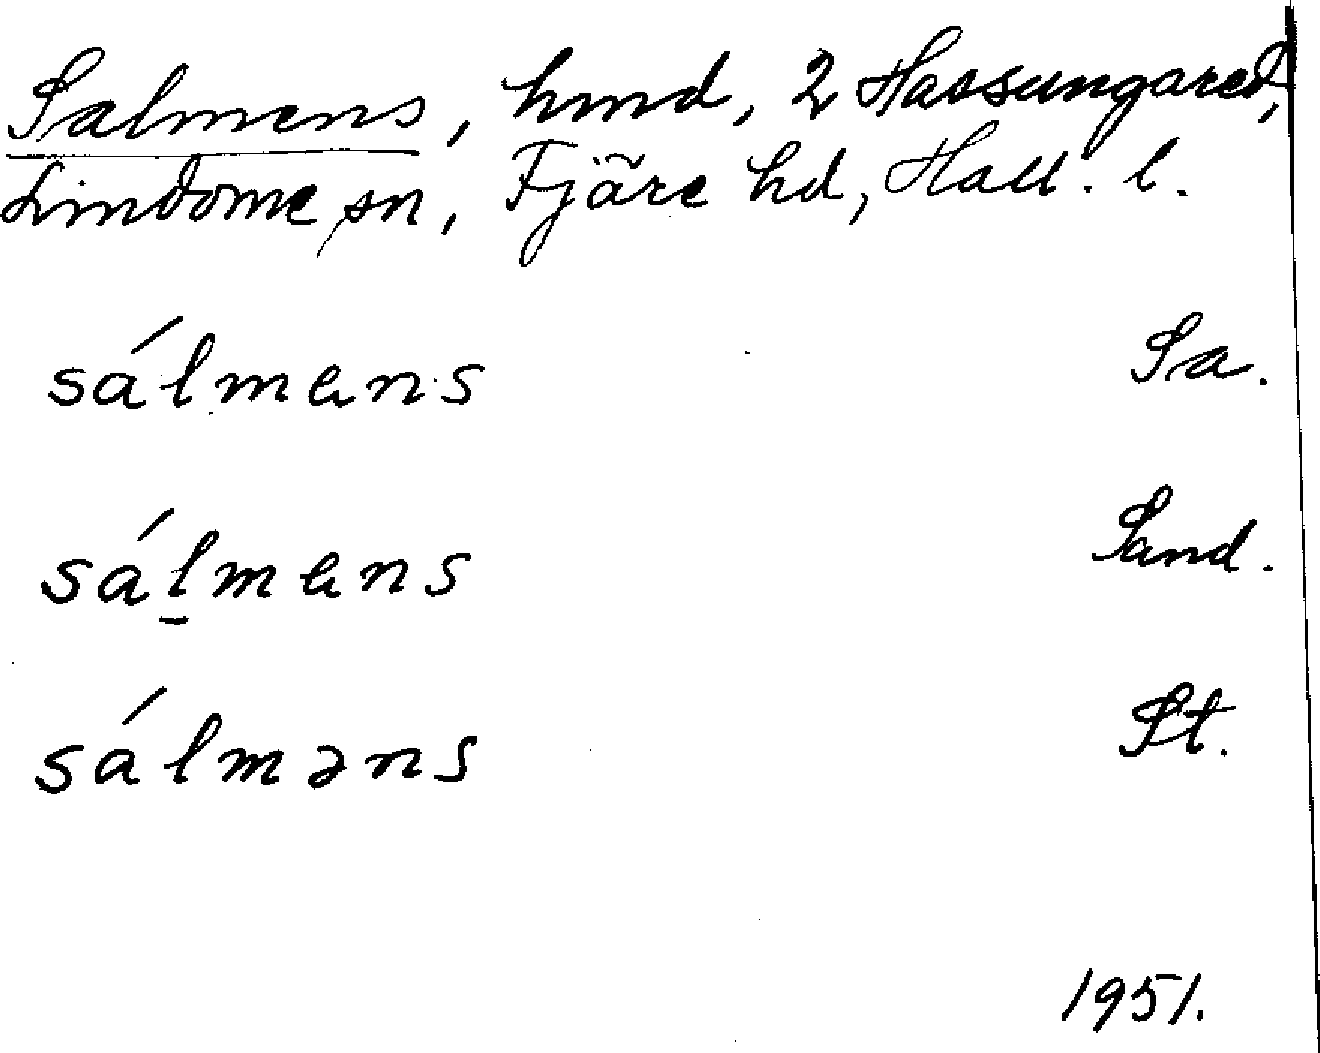 Salmens, hmd, 2 Hassungared,
Lindome sn, Fjäre hd, Hall. l.
sálmens Sa.
sálmens Sand.
sálməns St.
1951.